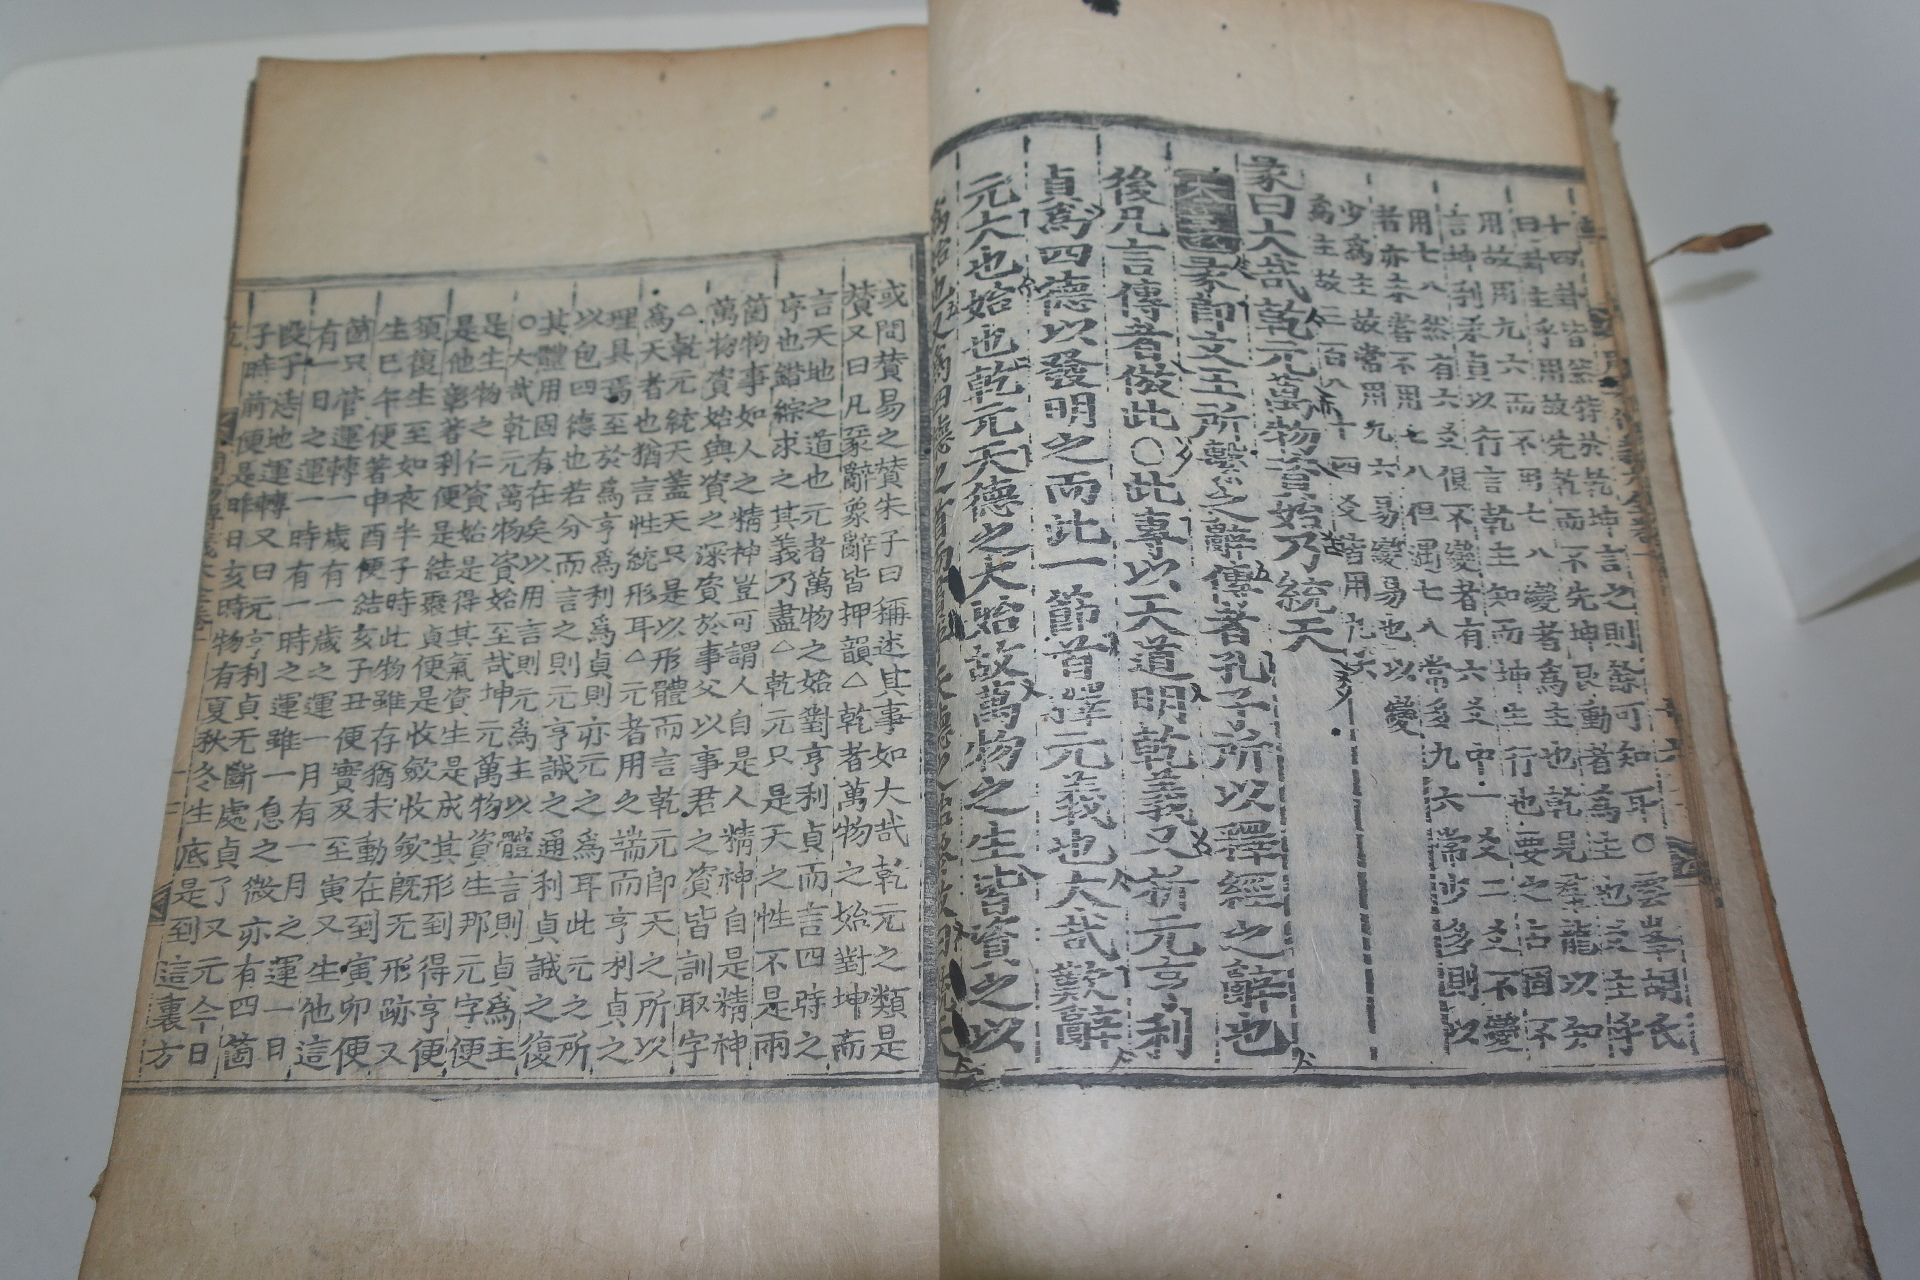 十四卦皆然特於乾坤言之則餘可知耳○雲峯胡氏
曰卦主乎用故先乾而不先坤艮動者爲主也爻主乎
用故用九六而不用七八變者爲主也乾見羣龍以知
言坤利永貞以行言乾主知而坤主行也要之占固不
用七八然有六爻俱不變者有六爻中一爻二爻不變
者亦未嘗不用七八但遇七八常多九六常少多則以
少爲主故常用九六易變易也以變
爲主故三百八十四爻皆用九六
彖曰大哉乾元萬物資始乃統天
本義彖卽文王所繫之辭傳者孔子所以釋經之辭也
後凡言傳者倣此○此專以天道明乾義又析元亨利
貞爲四德以發明之而此一節首釋元義也大哉歎辭
元大也始也乾元天德之大始故萬物之生皆資之以
爲始也又爲四德之首而
或問贊易之贊朱子曰稱述其事如大哉乾元之類是
贊又曰凡彖辭象辭皆押韻△乾者萬物之始對坤而
言天地之道也元者萬物之始對亨利貞而言四時之
序也錯綜求之其義乃盡△乾元只是天之性不是兩
箇物事如人之精神豈可謂人自是人精神自是精神
萬物資始與資之深資於事父以事君之資皆訓取字
△乾元統天蓋天只是以形體而言乾元卽天之所以
爲天者也猶言性統形耳△元者用之端而亨利貞之
理具焉至於爲亨爲利爲貞則亦元之爲耳此元之所
以包四德也若分而言之則元亨誠之通利貞誠之復
其體用固有在矣以用言則元爲主以體言則貞爲主
○大哉乾元萬物資始至哉坤元萬物資生那元字便
是生物之仁資始是得其氣資生是成其形到得亨便
是他彰著利便是結聚貞便是收斂收斂旣无形跡又
須復生至如夜半子時此物雖存猶未動在到寅卯便
生巳午便著申酉便結亥子丑便實及至寅又生他這
箇只管運轉一歲有一歲之運一月有一月之運一日
有一日之運一時有一時之運雖一息之微亦有四箇
段子恁地運轉又曰元亨利貞无斷處貞了又元今日
子時前便是昨日亥時物有夏秋冬生底是到這裏方